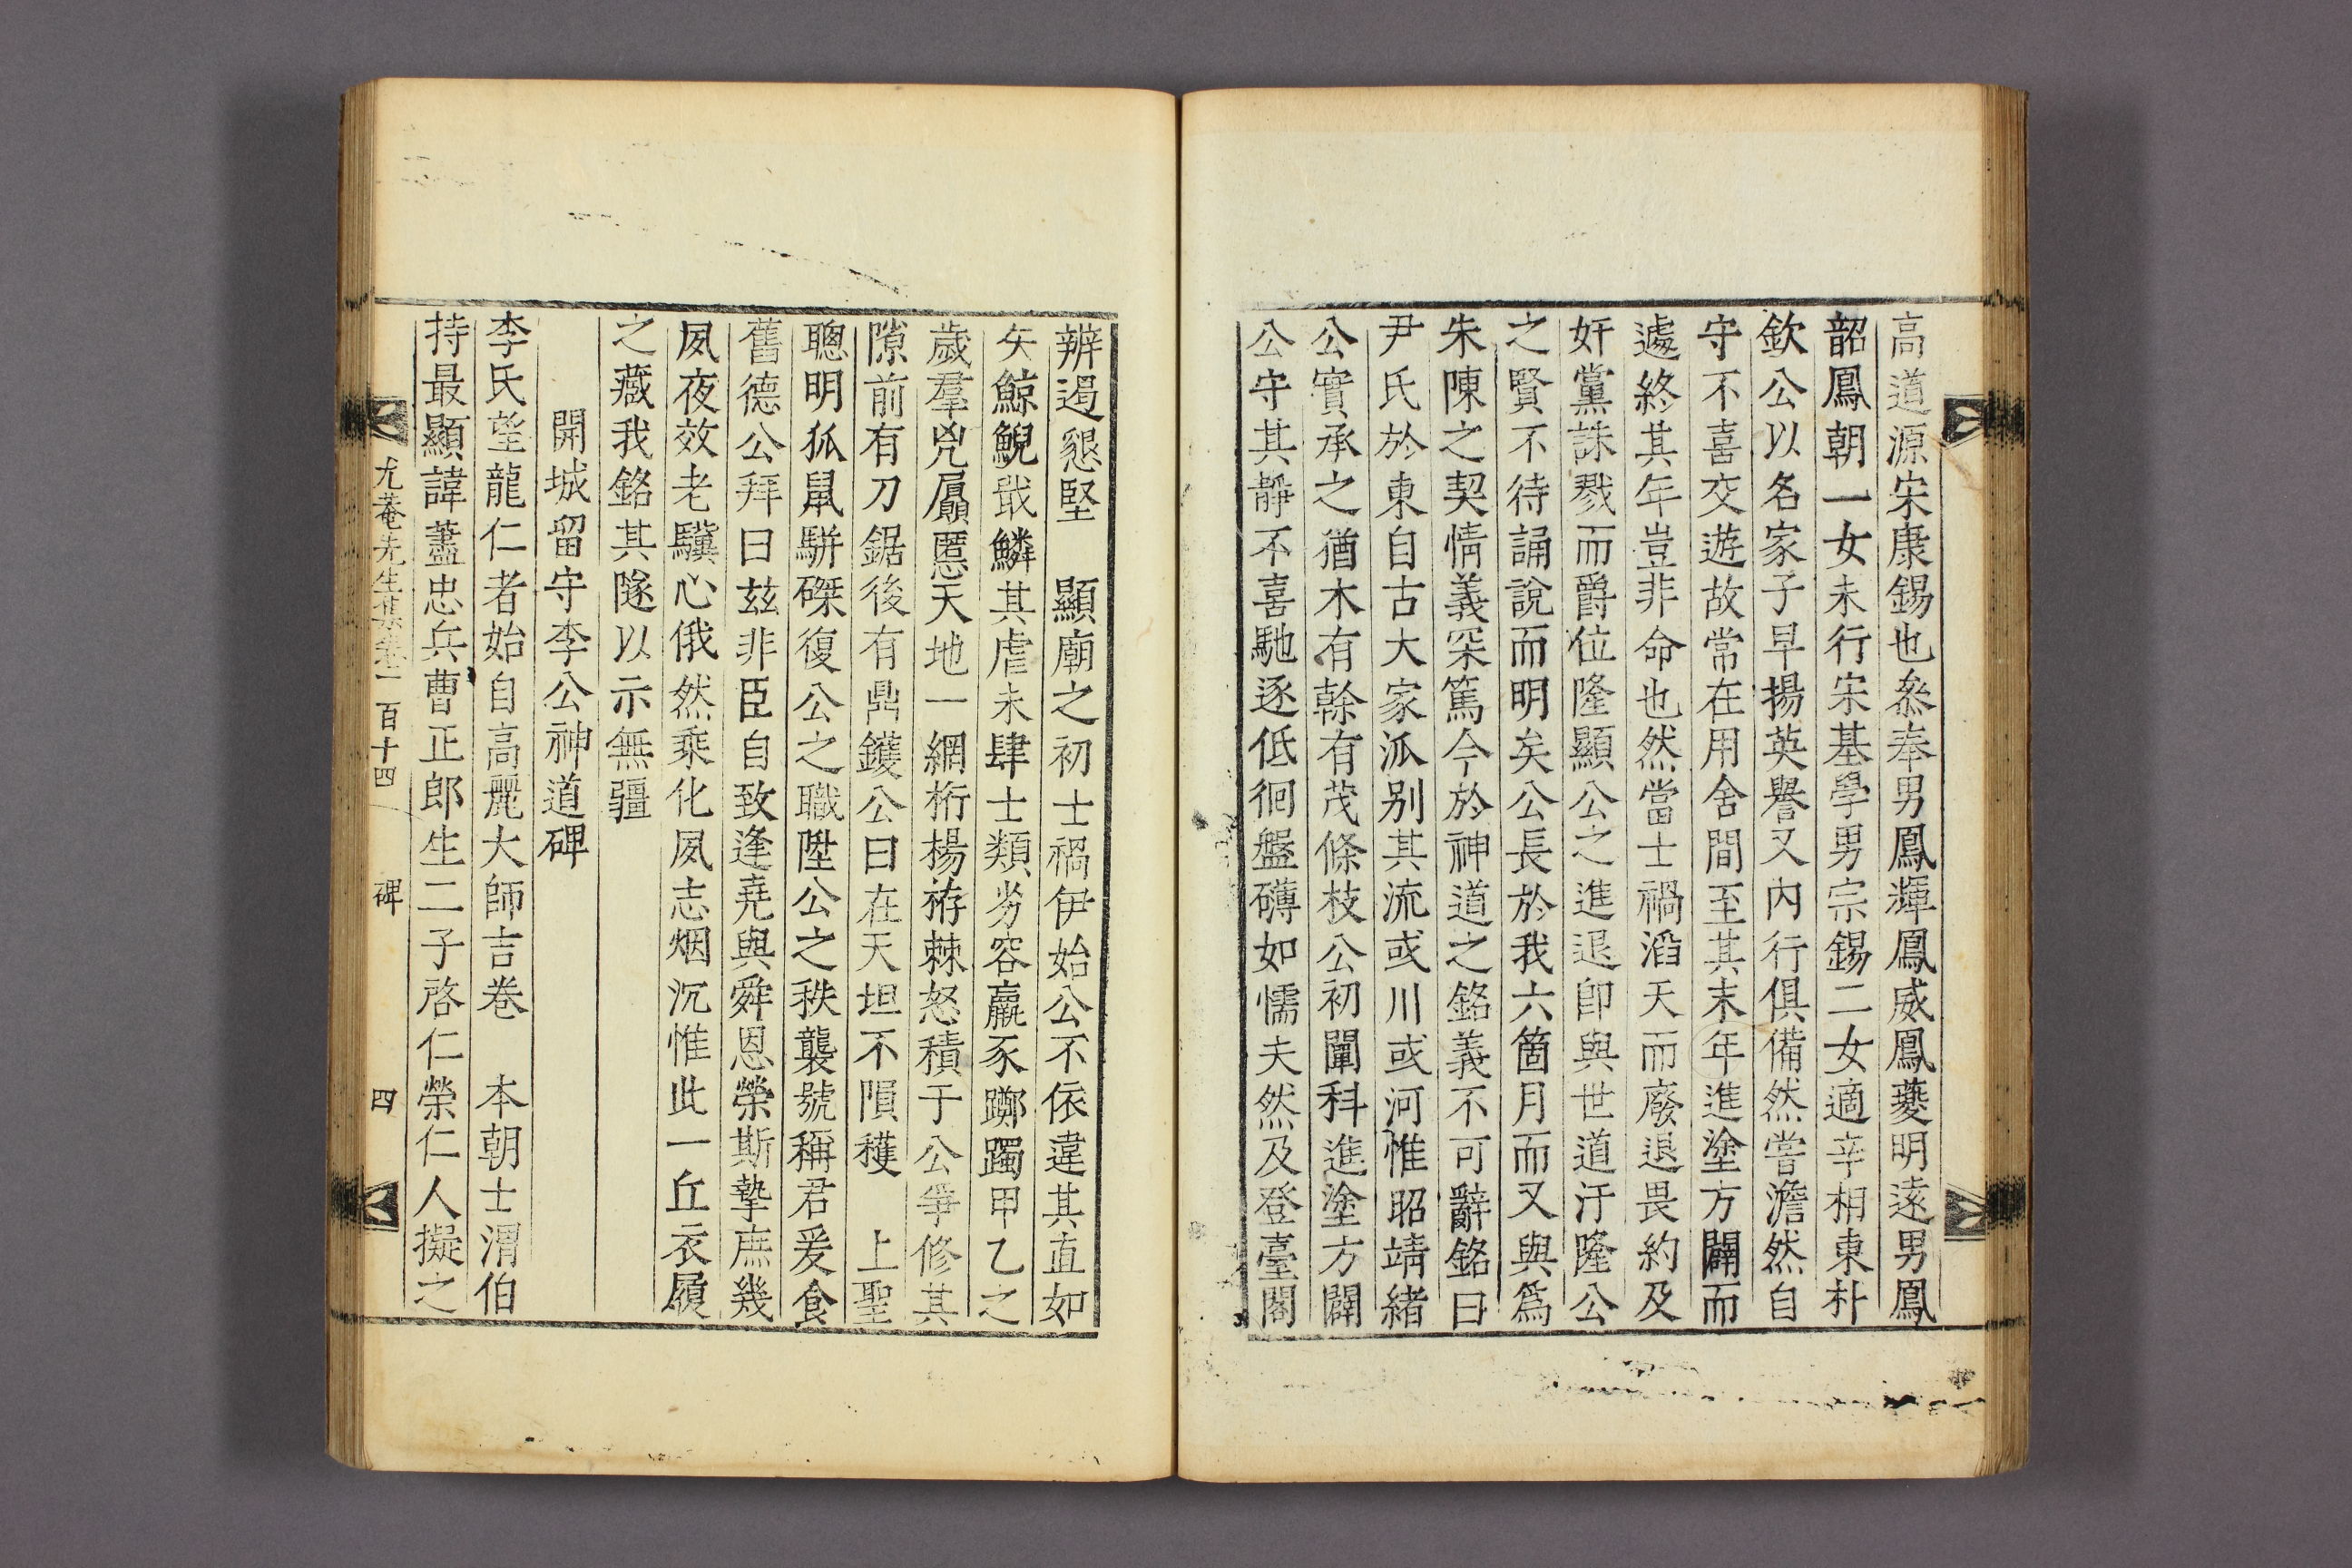 高道源宋康錫也叅奉男鳳輝鳳威鳳夔明遠男鳳
韶鳳朝一女未行宋基學男宗錫二女適辛相東朴
欽公以名家子早揚英譽又內行俱備然嘗澹然自
守不喜交遊故常在用舍間至其末年進塗方闢而
遽終其年豈非命也然當士禍滔天而廢退畏約及
奸黨誅戮而爵位隆顯公之進退卽與世道汙隆公
之賢不待誦說而明矣公長於我六箇月而又與爲
朱陳之契情義罙篤今於神道之銘義不可辭銘曰
尹氏於東自古大家派別其流或川或河惟昭靖緖
公實承之猶木有幹有茂條枝公初闡科進塗方闢
公守其靜不喜馳逐低徊盤礴如懦夫然及登臺閣
辨遏懇堅　顯廟之初士禍伊始公不依違其直如
矢鯨鯢戢鱗其虐未肆士類劣容羸豕躑躅甲乙之
歲羣兇屭慝天地一網桁楊栫棘怒積于公爭修其
隙前有刀鋸後有鼎鑊公曰在天坦不隕穫　上聖
聰明狐鼠騈磔復公之職陞公之秩襲號稱君爰食
舊德公拜曰玆非臣自致逢堯與舜恩榮斯摯庶幾
夙夜效老驥心俄然乘化夙志烟沉惟此一丘衣履
之藏我銘其隧以示無疆
開城留守李公神道碑
李氏望龍仁者始自高麗大師吉卷　本朝士渭伯
持最顯諱藎忠兵曹正郎生二子啓仁榮仁人擬之
尤菴先生集卷一百十四　碑　四